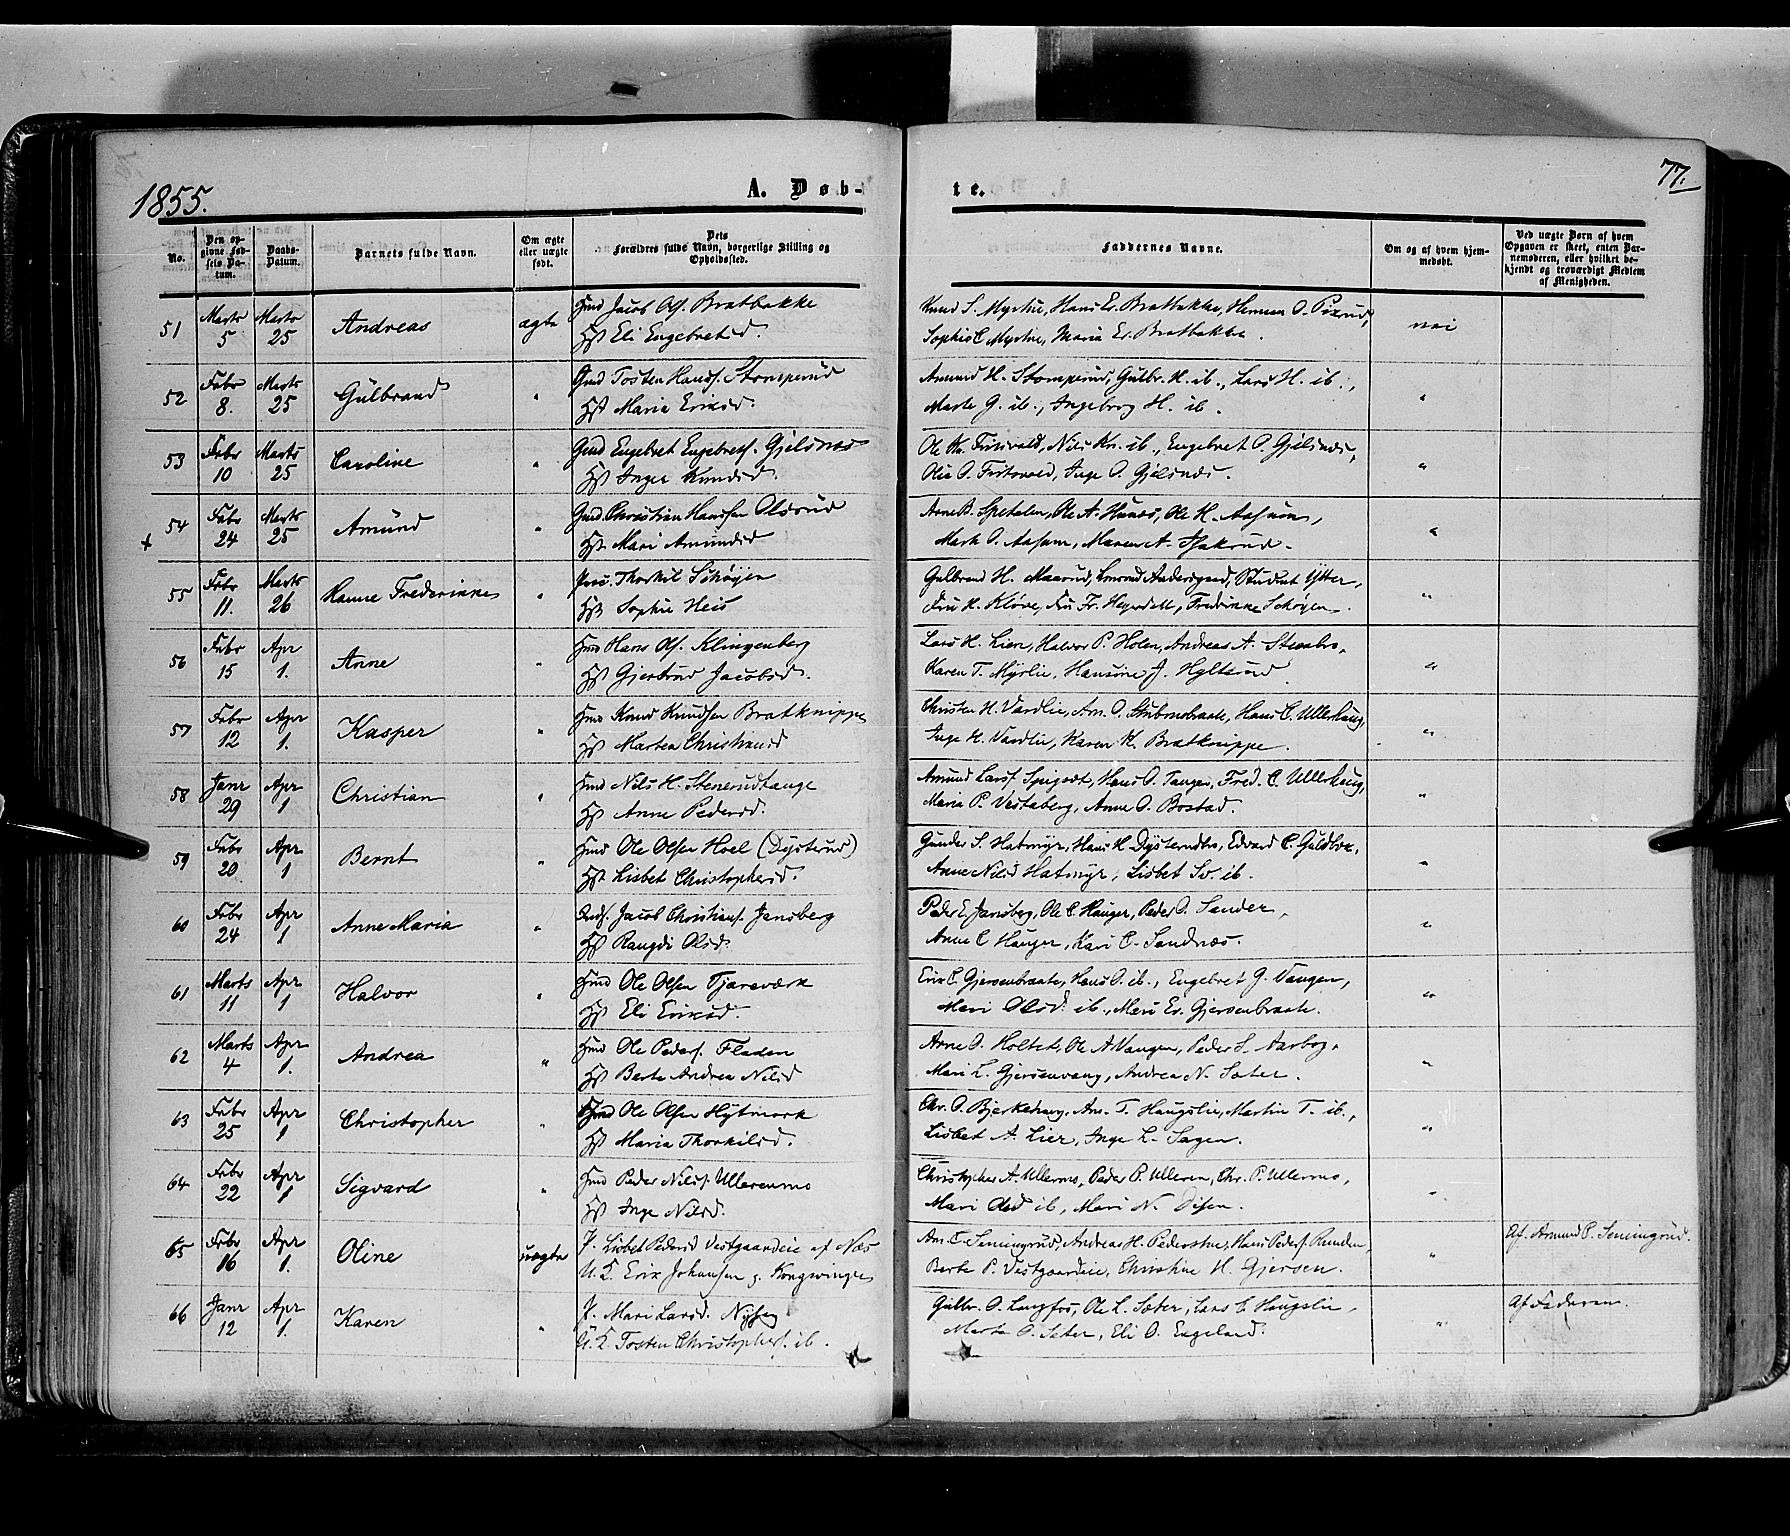 1855.
A. Døb-
te.
77.
No.
Den opgivne Fødsels Datum.
Daabs-Datum.
Barnets fulde Navn.
Om ægte eller uægte født.
Dets Forældres fulde Navn, borgerlige Stilling og Opholdssted.
Faddernes Navne.
Om og af hvem hjemmedøbt.
Ved uægte Børn af hvem Opgaven er skeet, enten Barnemoderen, eller hvilket bekjendt og troværdigt Medlem af Menigheden.
51 Marts 5 Marts 25 Andreas ægte
Hmd Jacob Ols. Bratbakke
Hst Eli Engebretsd.
Knud S. Myrlie, Hans Er. Bratbakke, Herman O.
Sophie C Myrlie, Maria Er. Bratbakke.
nei
52 Febr 8. Marts 25 Gulbrand "
Gmd Tosten Hansf. Stomperud
Hst Maria Eriksd.
Amund H. Stomperud, Gulbr. H. ib., Lars H. ib.,
Marte G. ib., Ingeborg H. ib.
"
53 Febr 10 Marts 25 Caroline "
Gmd Engebret Engebretsf. Gjelsnæs
Hst Inger Knudsd.
Nils Kn. ib., Engebret O. Gjelsnæs,
Inge O. Gjelsnæs.
"
+ 54 Febr 24 Marts 25 Amund "
Gmd. Christian Hansen Olsrud
Hst Mari Amundsd
Arne B. Spetalen, Ole A. Hunæs, Ole H. Aasum,
Mart O. Aasum, Maren A.
"
55 Febr 11. Marts 26 Hanne Frederikke "
Thorkil Schøyen
Hst Sophie Heis
Gulbrand H. Maarud, Student Ytter,
Fru H. Kløve, Fru Fr. Heyerdall, Fredrikke Schøyen.
"
56 Febr 15 Apr 1. Anne "
Hmd Hans Ols. Klingenberg
Hst Gjertrud Jacobsd.
Lars H. Lien, Halvor P. Holen, Andreas A. Steenbro,
Karen T. Myrlie, Hansine J. Hyltsrud
"
57 Febr 12 Apr 1. Kasper "
Hmd Knud Knudsen Bratknippe
Hst Martea Christiansd
Christen H. Vardlie, Am. O. Stubmobraate, Hans C. Ullerhaug,
Inge H. Vardlie, Karen K. Bratknippe.
"
58 Janr 29 Apr 1 Christian "
Hmd Nils H. Stenerudhauge
Hst Anne Pedersd.
Amund Larsf. Spigset, Hans O. Tangen, Fred. C. Ullerhaug,
Maria P. Vestaberg, Anne O. Bostad.
"
59 Febr 20 Apr 1 Bernt "
Hmd Ole Olsen Hoel (Dysterud)
Hst Lisbet Christophersd.
Gunder S. Hatmyr, Hans H Edvard C. Guldbæk,
Anne Nilsd Hatmyr, Lisbet Sv ib.
"
60 Febr 24 Apr 1 Anne Maria "
Jacob Christiansf. Jansberg
Hst Rangdi Olsd.
Peder E. Jansberg, Ole C. Hauger, Peder O. Sander,
Anne C Hauger, Kari C. Sandnæs.
"
61 Marts 11 Apr 1 Halvor "
Hmd Ole Olsen Tjæreværk
Hst Eli Eriksd.
Erik E. Gjersenbraate, Hans O. ib., Engebret G. Vangen,
Mari Olsd. ib., Mari Er. Gjersenbraate.
"
62 Marts 4 Apr 1. Andrea "
Hmd Ole Pedersf. Fladen
Hst Berte Andrea Nilsd
Arne O. Holtet, Ole A Vangen, Peder S. Aarbog,
Mari L. Gjersenvang, Andrea N. Sæter.
"
63 Febr 25 Apr 1 Christopher "
Hmd Ole Olsen Hytmark
Hst Maria Thorkilsd.
Chr. O. Bjerkehaug, Am. T. Haugslie, Martin T. ib.,
Lisbet A. Lier, Inge L. Sagen.
"
64 Febr 22 Apr 1 Sigvard "
Hmd Peder Nilsf. Ullerenmo
Hst Inge Nilsd.
Christopher A. Ullermo, Peder P. Ulleren, Chr. P. Ullermo,
Mari Olsd ib, Mari N. Disen.
"
65 Febr 16 Apr 1. Oline uægte
P. Lisbet Pedersd Vestgaardeie af Næs
U.K. Erik Johansen g. Kongsvinger
Am. C. Seningrud, Andreas H. Hans Pedersf. Runden
Berte P. Vestgaardeie, Christine H. Gjersen.
"
Af Amund C. Seningrud.
66 Janr 12 Apr 1. Karen "
P. Mari Larsd.
U.K. Tosten Christophersf. ib.
Gulbr. O. Langfos, Ole L. Sæter, Lars C Haugslie,
Marte O. Sæter, Eli O. Engeland.
"
Af Faderen.